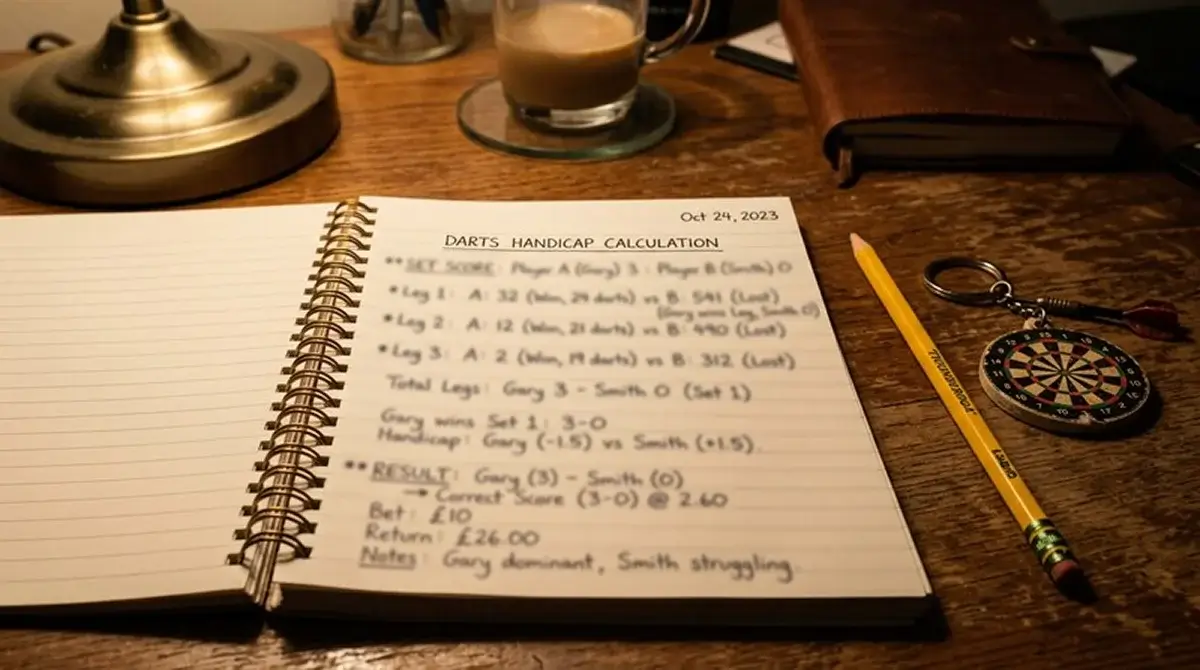 Oct 24, 2023
DARTS HANDICAP CALCULATION
** SET SCORE: Player A (Gary) 3 : Player B (Smith) 0
* Leg 1: A: 32 (Won, 24 darts) vs B: 541 (Lost)
(Gary wins Leg, Smith 0)
* Leg 2: A: 12 (Won, 21 darts) vs B: 490 (Lost)
* Leg 3: A: 2 (Won, 19 darts) vs B: 312 (Lost)
Total Legs: Gary 3 - Smith 0 (Set 1)
Gary wins Set 1: 3-0
Handicap: Gary (-1.5) vs Smith (+1.5).
** RESULT: Gary (3) - Smith (0)
→ Correct Score (3-0) @ 2.60
Bet: £10
Return: £26.00
Notes: Gary dominant, Smith struggling.